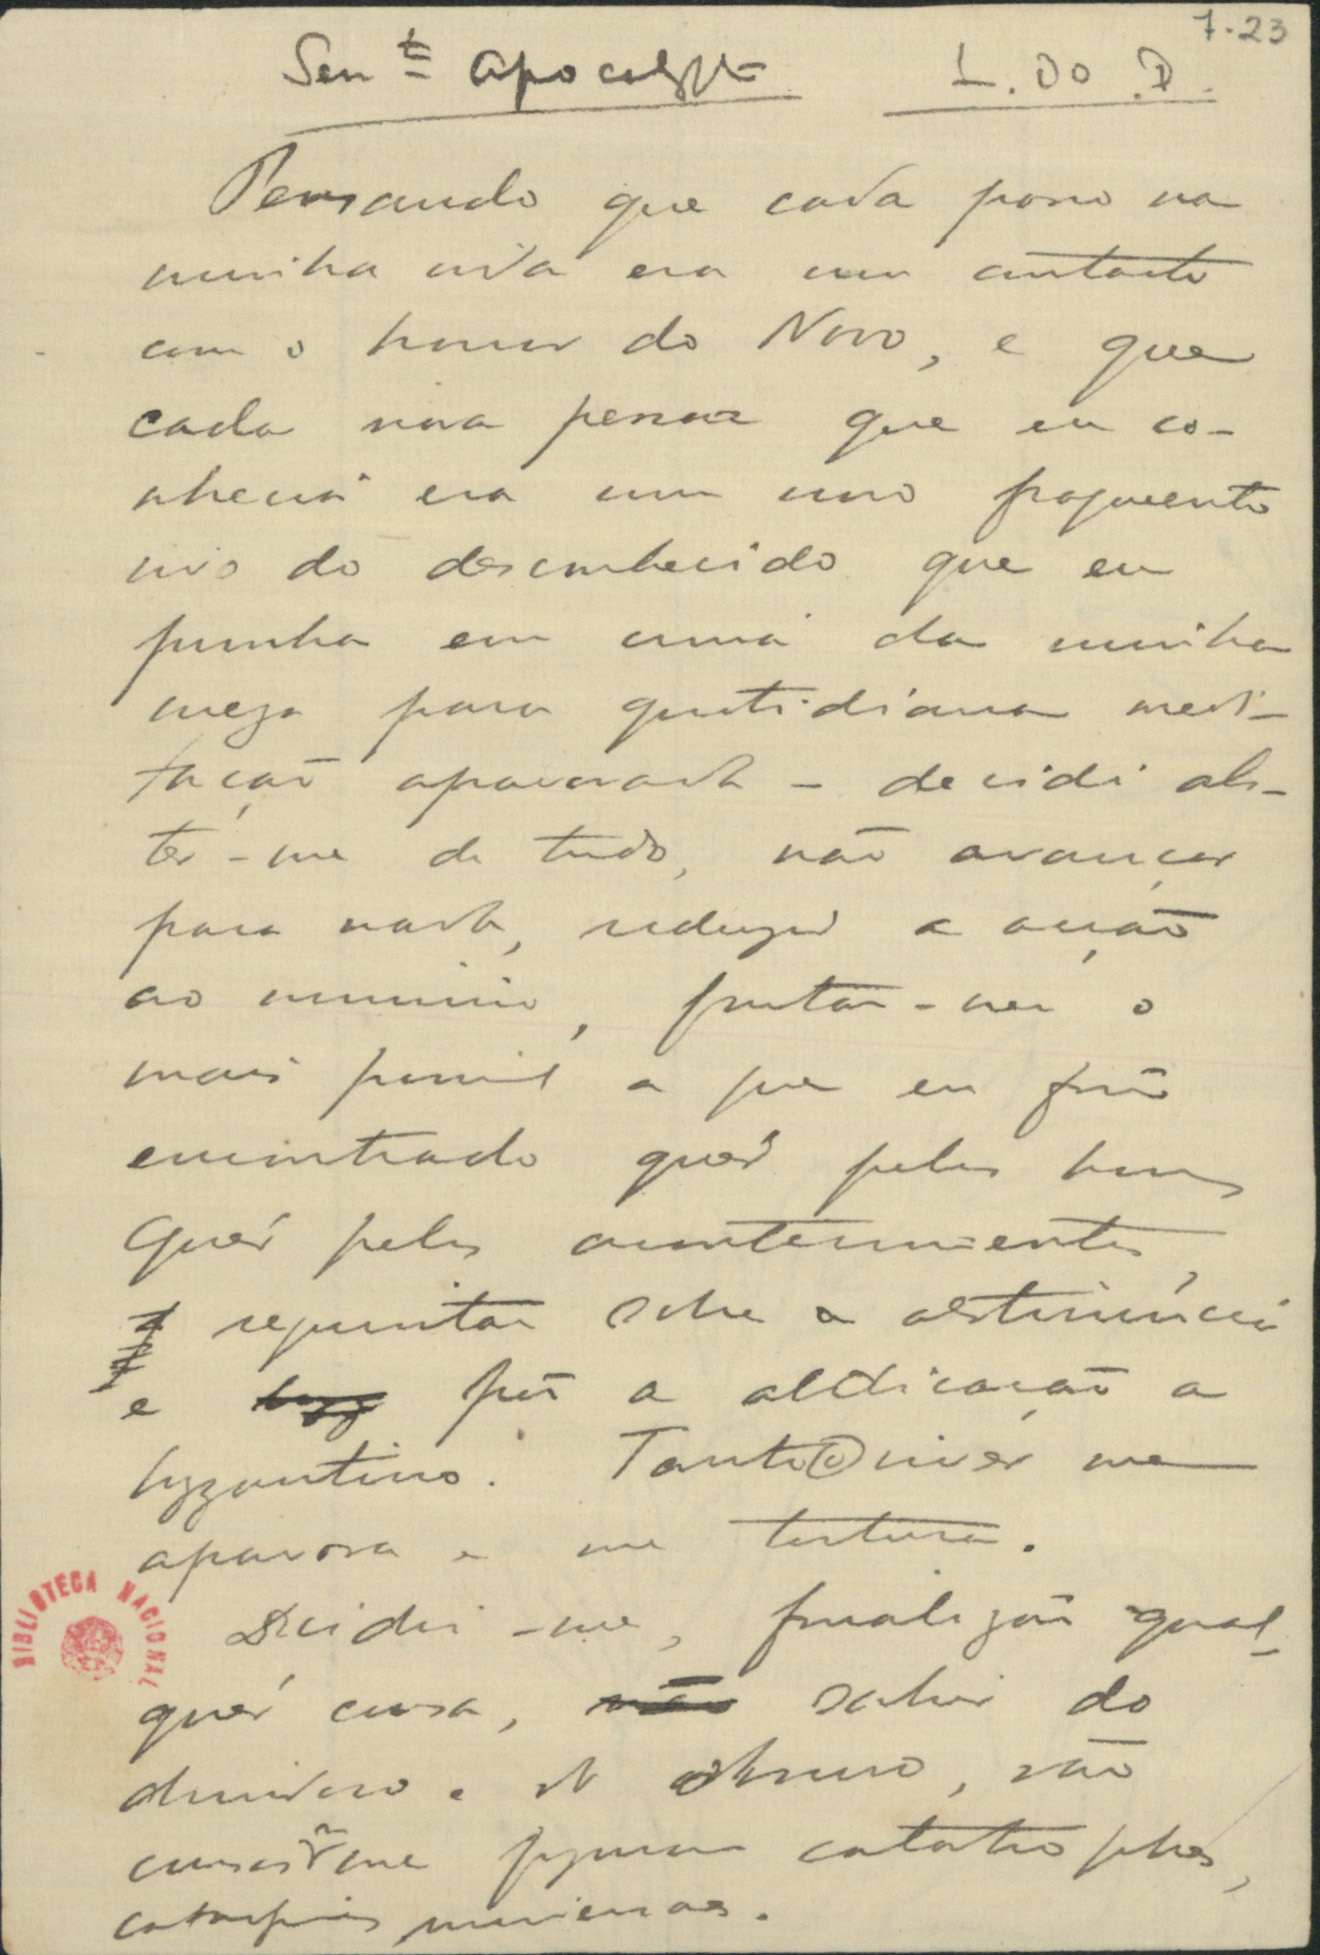 7-23
Sen.to Apocalyptico L. do D.
Pensando que cada passo na
minha vida era um contacto
com o horror do Novo, e que
cada nova pessoa que eu co-
nhecia era um novo fragmento
vivo do desconhecido que eu
punha em cima da minha
meza para quotidiana medi-
tação apavorada - decidi abs-
ter-me de tudo, não avançar
para nada, reduzir a acção
ao minimo, furtar-me o
mais possivel a que eu fosse
encontrado quér pelos homens
quér pelos acontecimentos,
requintar sobre a abstinência
e pôr a abdicação a
byzantino. Tanto o vivér me
apavora e me tortura.
Decidir-me, finalizar qual-
quér cousa, sahir do
duvidoso e do obscuro, são
cousas me figuram catastrophes,
universaes.
BIBLIOTECA NACIONAL